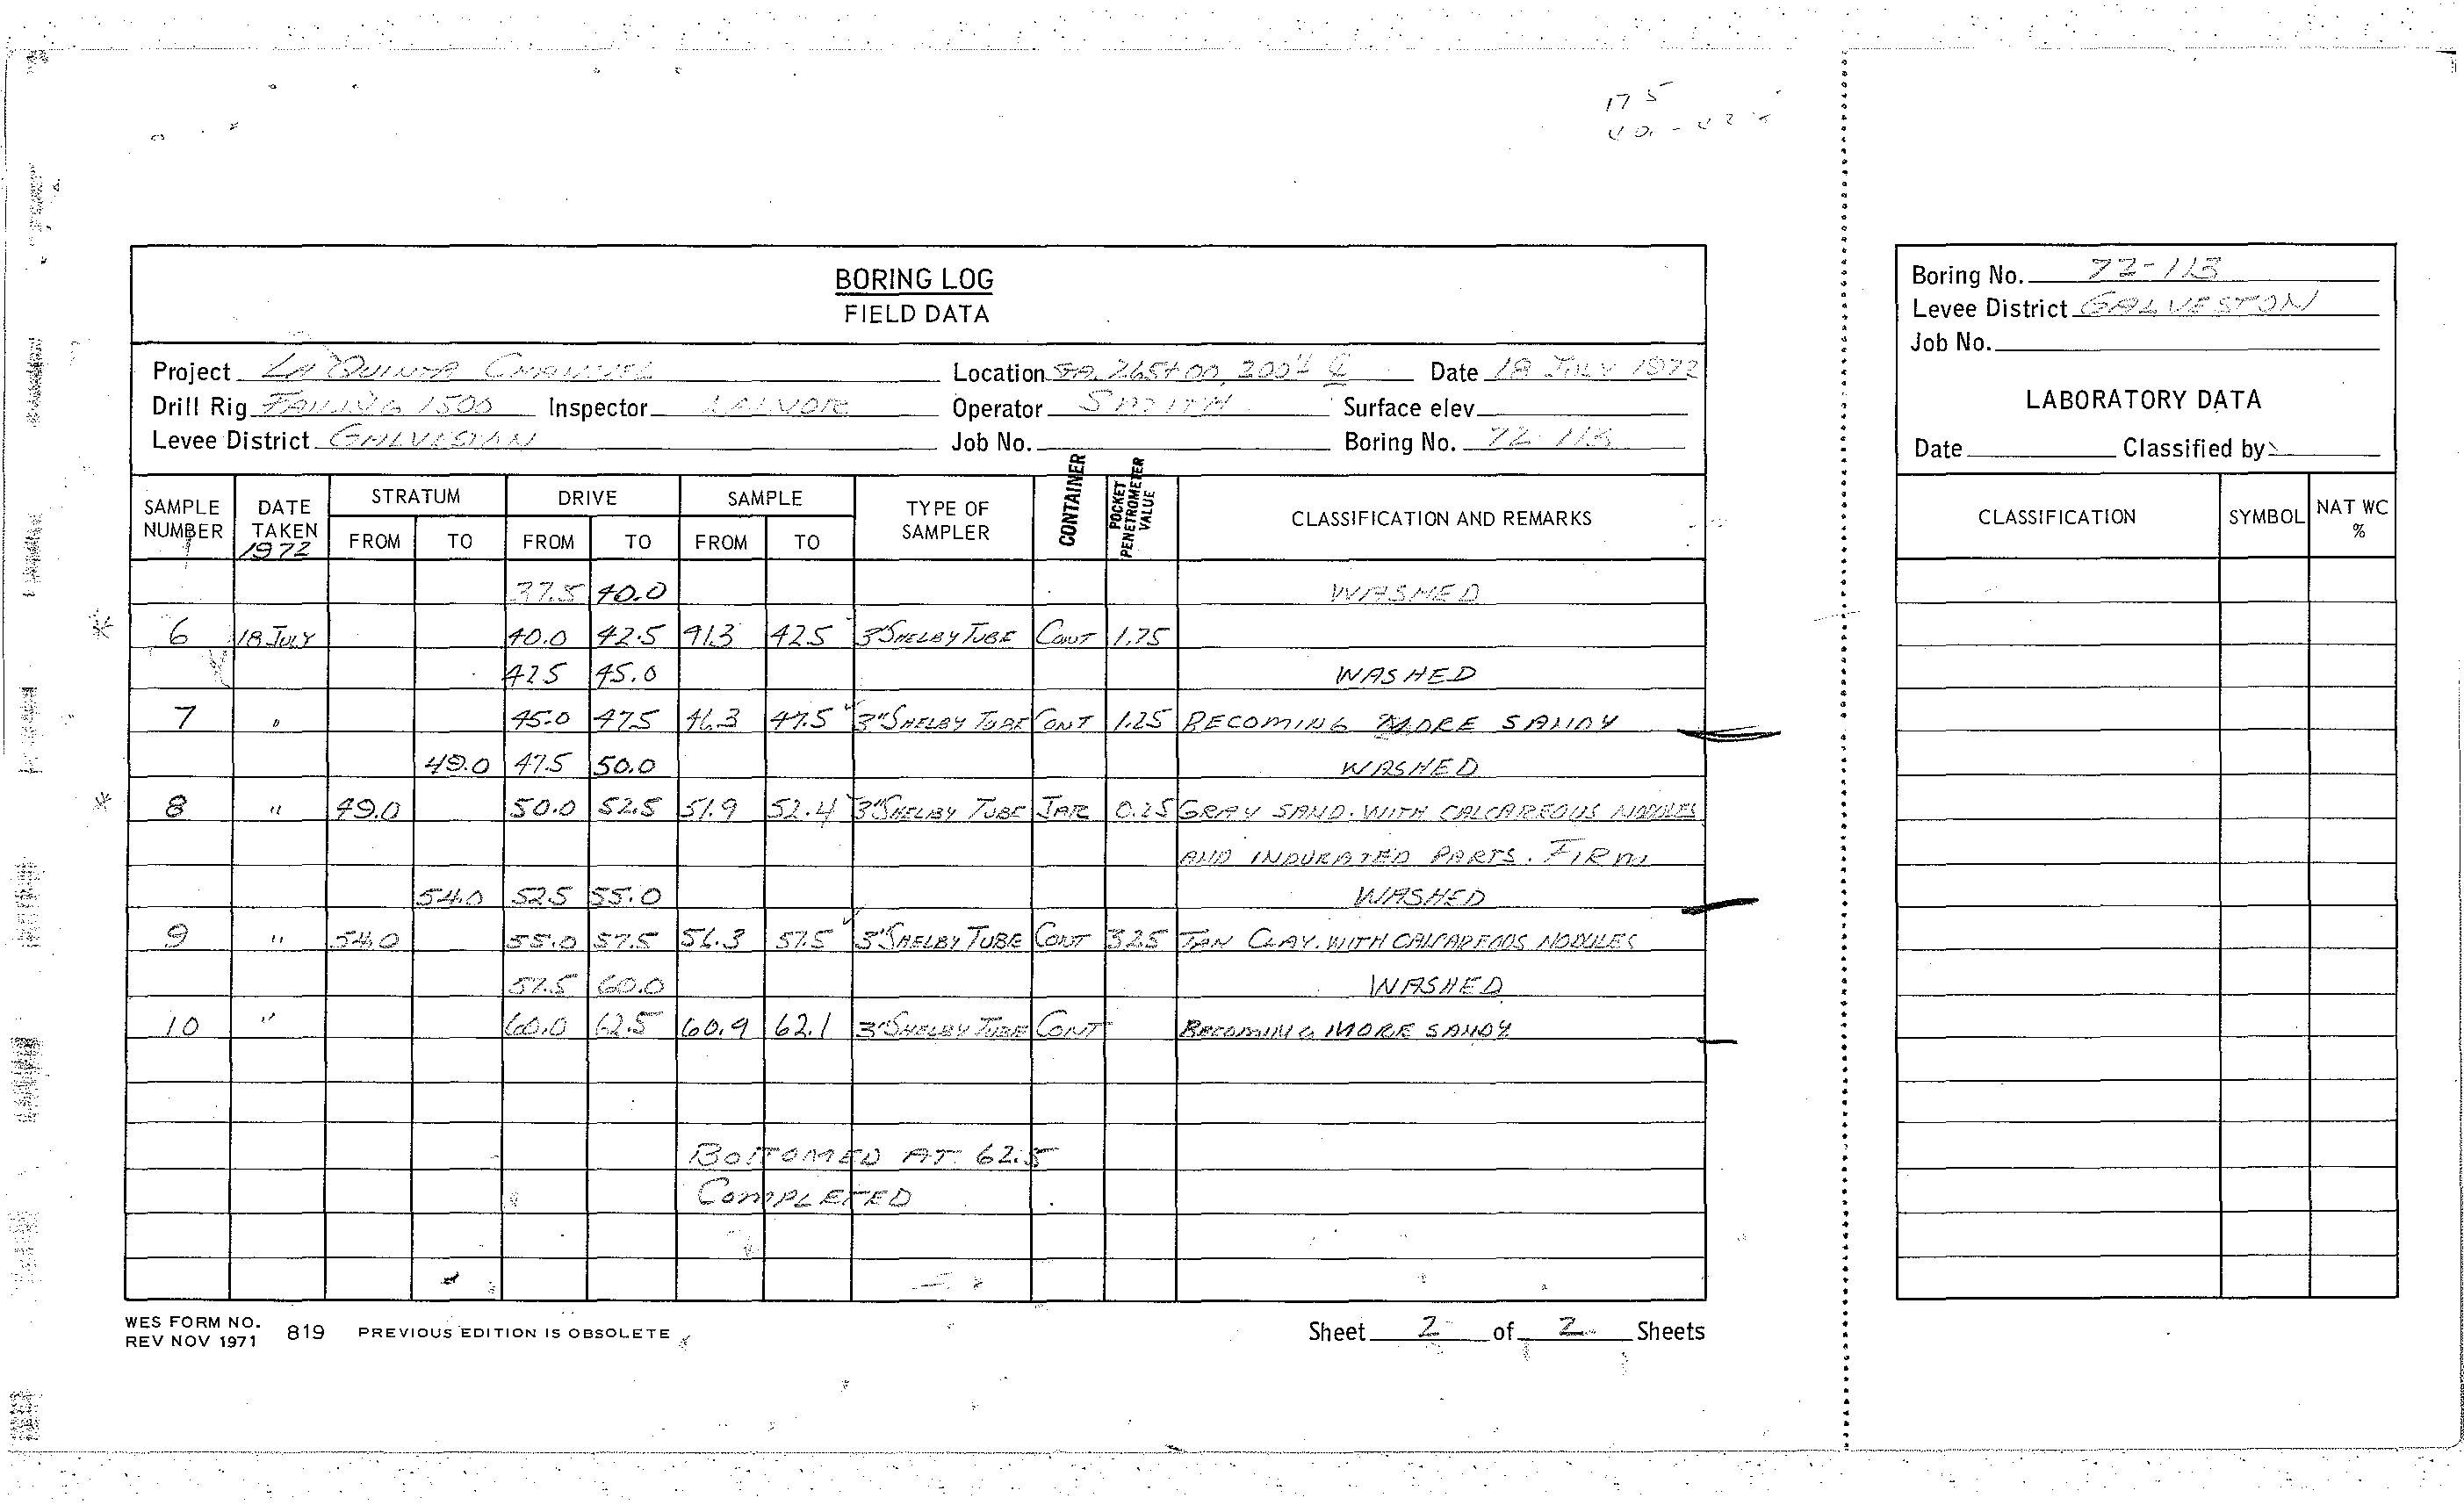 17 5
40. - 42
BORING LOG
FIELD DATA
Project LA QUINTA CHANNEL Location STA. 265+00, 200' ℄ Date 18 JULY 1972
Drill Rig FAILING 1500 Inspector Operator SMITH Surface elev.
Levee District GALVESTON Job No. Boring No. 72-113
SAMPLE NUMBER DATE TAKEN 1972 STRATUM FROM TO DRIVE FROM TO SAMPLE FROM TO TYPE OF SAMPLER CONTAINER POCKET PENETROMETER VALUE CLASSIFICATION AND REMARKS
37.5 40.0 WASHED
6 18 JULY 40.0 42.5 41.3 42.5 3" SHELBY TUBE CONT 1.75
42.5 45.0 WASHED
7 " 45.0 47.5 46.3 47.5 3" SHELBY TUBE CONT 1.25 BECOMING MORE SANDY
49.0 47.5 50.0 WASHED
8 " 49.0 50.0 52.5 51.9 52.4 3" SHELBY TUBE JAR 0.25 GRAY SAND. WITH CALCAREOUS NODULES
AND INDURATED PARTS. FIRM
54.0 52.5 55.0 WASHED
9 " 54.0 55.0 57.5 56.3 57.5 3" SHELBY TUBE CONT 3.25 TAN CLAY. WITH CALCAREOUS NODULES
57.5 60.0 WASHED
10 " 60.0 62.5 60.9 62.1 3" SHELBY TUBE CONT BECOMING MORE SANDY
BOTTOMED AT 62.5
COMPLETED
WES FORM NO. 819 PREVIOUS EDITION IS OBSOLETE
REV NOV 1971
Sheet 2 of 2 Sheets
Boring No. 72-113
Levee District GALVESTON
Job No.
LABORATORY DATA
Date Classified by
CLASSIFICATION SYMBOL NAT WC %